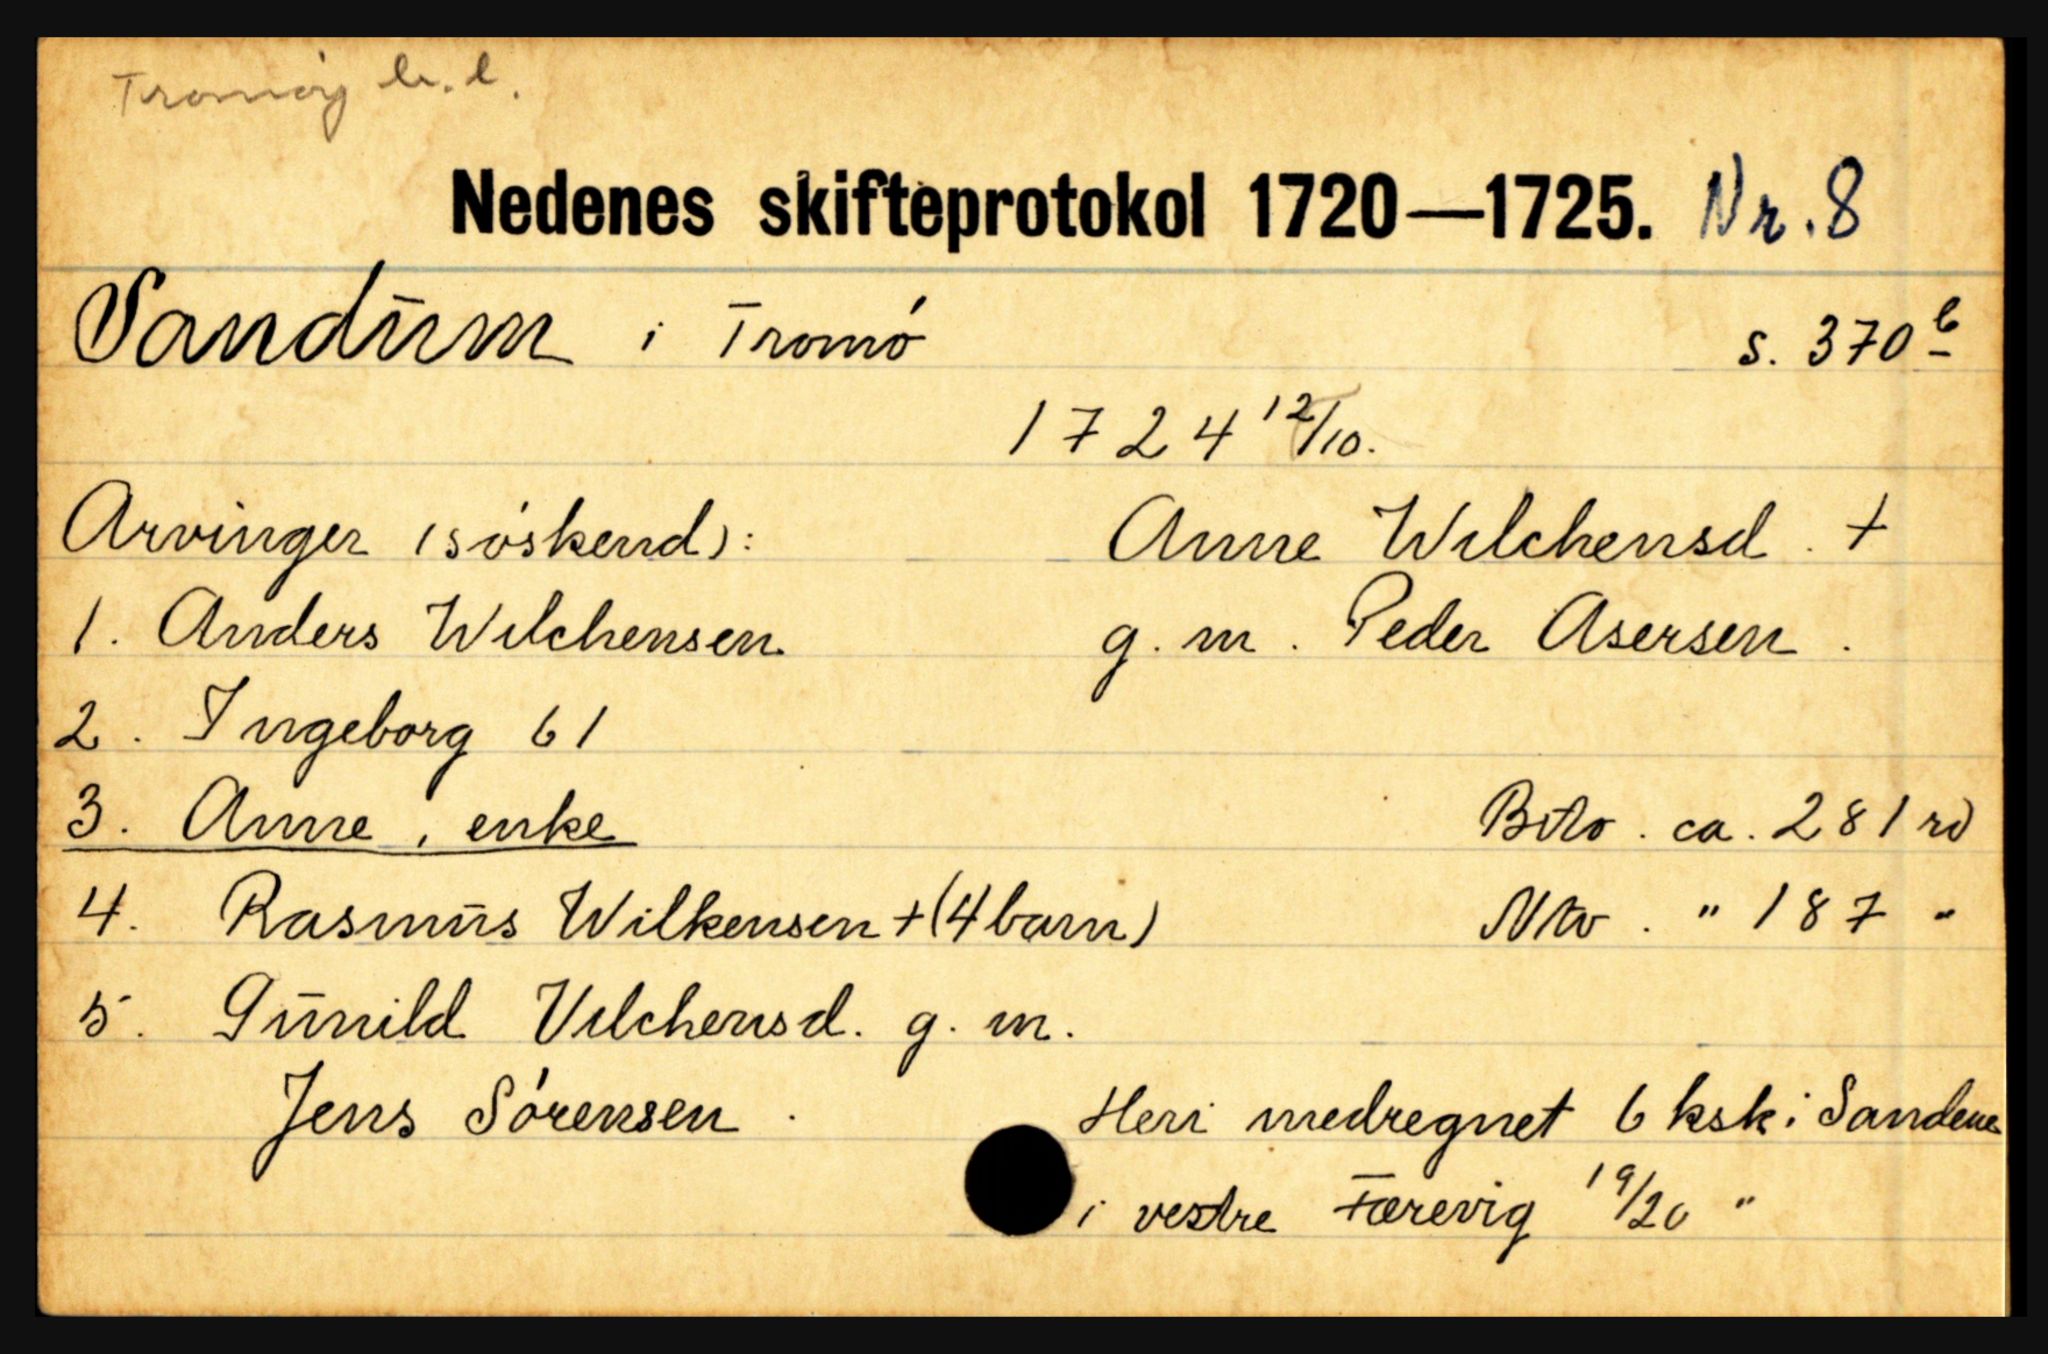 Tromøy
Nedenes skifteprotokol 1720—1725. Nr. 8
Sandum i Tromó s. 370 b
1724 12/10.
Arvinger (sóskend): Anne Wilchensd. +
1. Anders Wilchensen g. m. Peder Asersen.
2. Ingeborg 61
3. Anne, enke Btto. ca. 281 rd
4. Rasmus Wilkensen + (4 barn) Ntto. " 187 "
5. Gunild Vilchensd. g. m.
Jens Sórensen. Heri medregnet 6 ksk i Sandene
i vestre Færevig 19/20 "